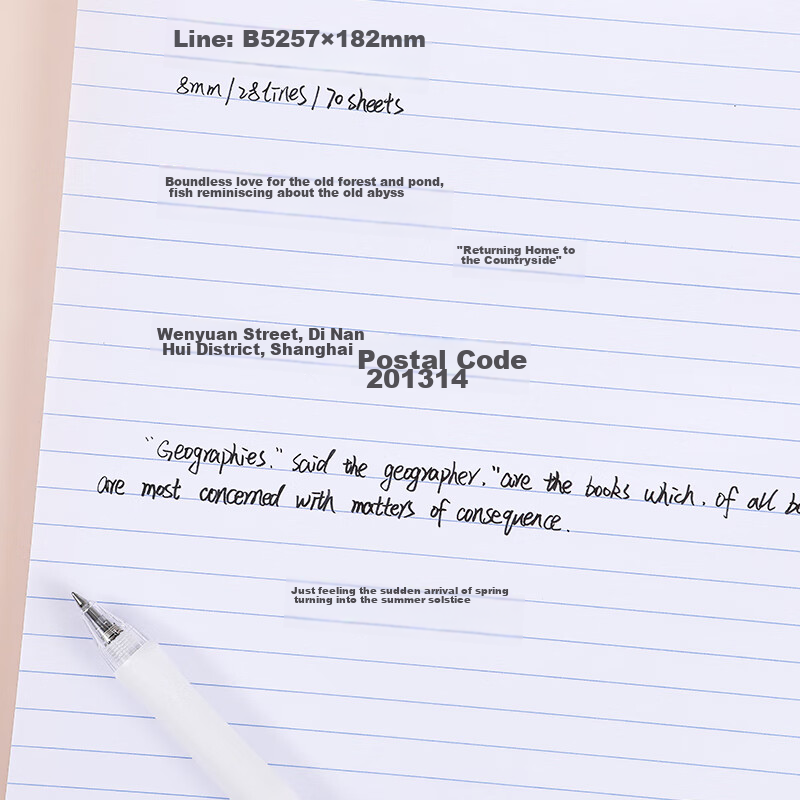 Line: B5257×182mm
8mm/28lines/70sheets
Boundless love for the old forest and pond,
fish reminiscing about the old abyss
"Returning Home to
the Countryside"
Wenyuan Street, Di Nan
Hui District, Shanghai
Postal Code
201314
"Geographies." said the geographer. "are the books which. of all
are most concerned with matters of consequence.
Just feeling the sudden arrival of spring
turning into the summer solstice